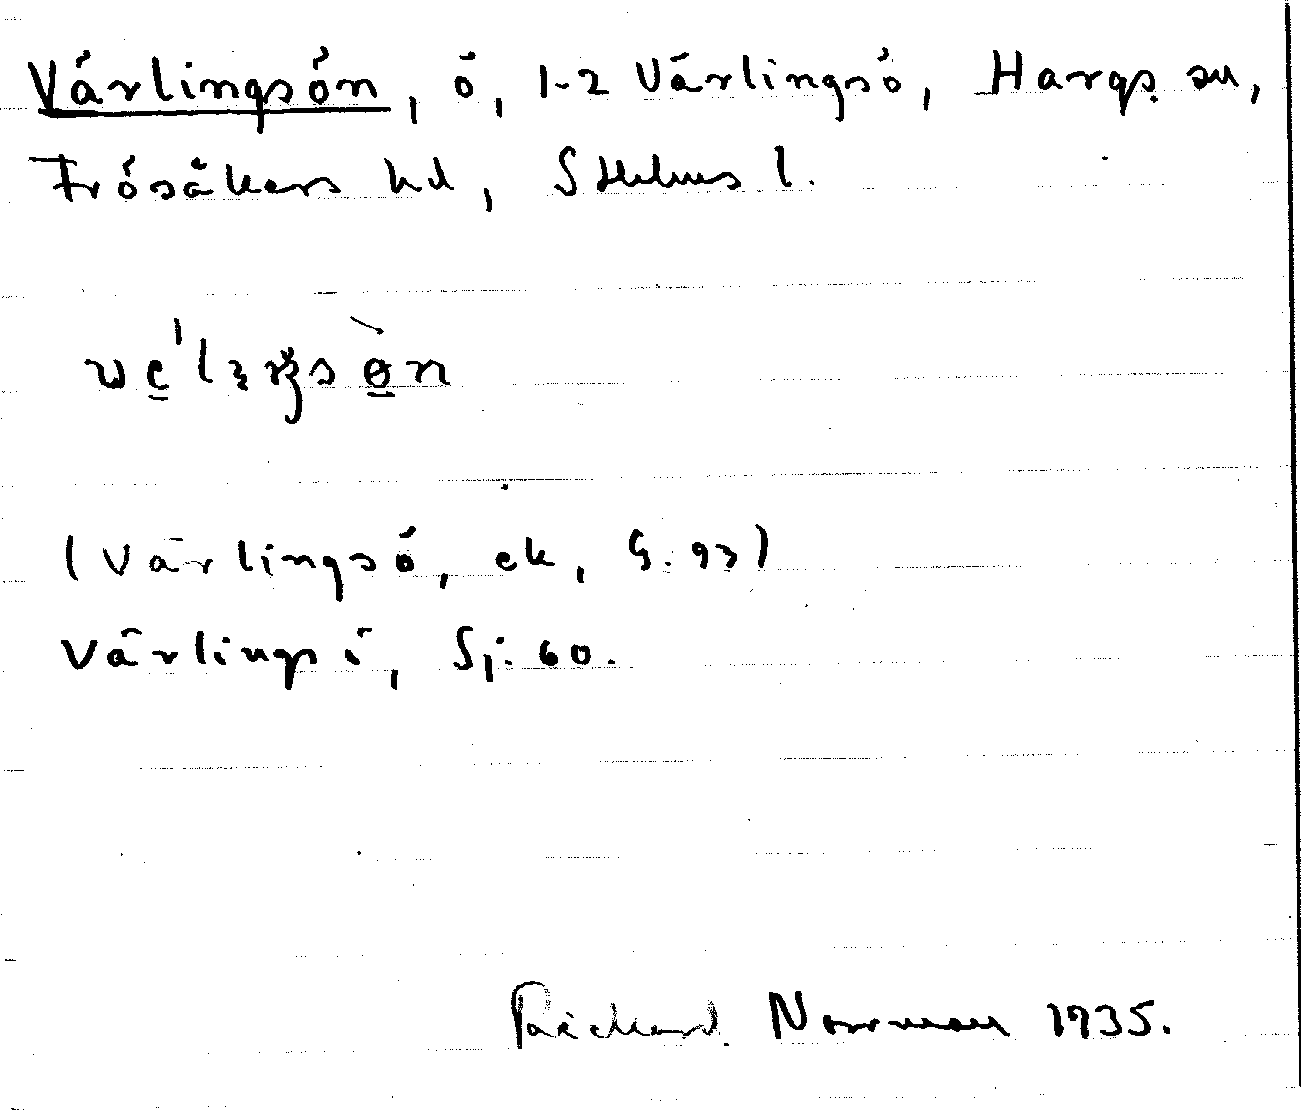 Värlingsön, ö, 1-2 Värlingsö, Hargs sn,
Frösåkers hd, Sthlms l.
(Värlingsö, ek, G. 93)
Värlingsö, Sj. 60.
Rickard Norrman 1935.